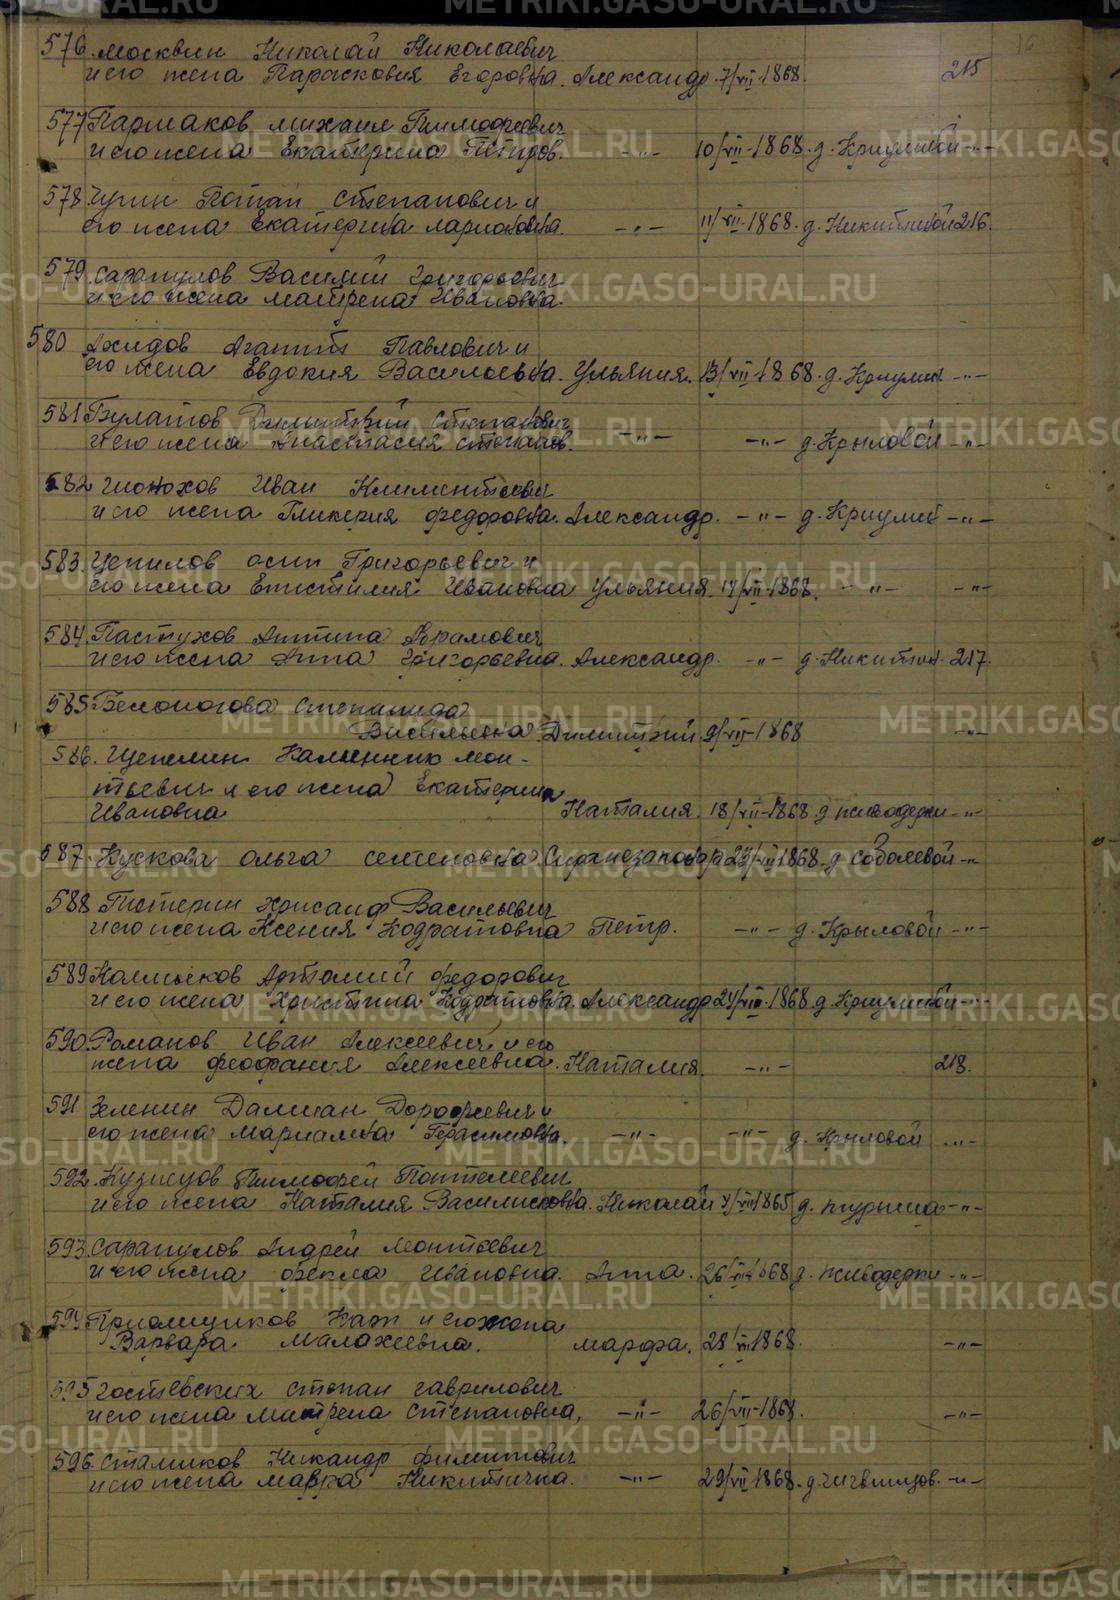 16
576. Москвин Николай Николаевич
и его жена Парасковия Егоровна. Александр. 7/VII-1868. 215
577 Пармаков Михаил Тимофеевич
и его жена Екатерина Петров. -"- 10/VII-1868. д. Криулиной -"-
578. Чупин Потап Степанович и
его жена Екатерина Ларионовна. -"- 11/VII-1868. д. Никитиной 216.
579. Сарапулов Василий Григорьевич
и его жена Матрена Ивановна.
580 Ахидов Агапит Павлович и
его жена Евдокия Васильевна. Ульяния. 13/VII-1868. д. Криулин -"-
581 Булатов Димитрий Степанович
и его жена Анастасия Степанов. -"- -"- д. Крыловой -"-
582 Иван Климентьевич
и его жена Гликерия Федоровна. Александр. -"- д. Криулин -"-
583. Цепилов Осип Григорьевич и
его жена Епистилия Ивановна Ульяния. 14/VII-1868. -"- -"-
584. Пастухов Антипа Абрамович
и его жена Анна Григорьевна. Александр. -"- д. Никитин. 217.
585 Белоногова Степанида
Васильевна Димитрий 9/VII-1868 -"-
586. Щепелин Каллиник Мои-
сеевич и его жена Екатерина
Ивановна Наталия. 18/VII-1868 д Живодерки -"-
587. Кускова Ольга Семеновна 23/VII 1868. д Соболевой -"-
588 Тетерин Хрисанф Васильевич
и его жена Ксения Кодратовна Петр. -"- д. Крыловой -"-
589 Колмыков Артамий Федорович
и его жена Христина Кодратовна. Александр 24/VII-1868 д. Криулиной -"-
590. Романов Иван Алексеевич и его
жена Феофания Алексеевна. Наталия. -"- 218.
591 Зеленин Далмат Дорофеевич и
его жена Мариамна Герасимовна. -"- -"- д. Крыловой -"-
592. Кузнецов Тимофей Пантелеевич
и его жена Наталия Николай 4/VII 1865 д. -"-
593. Сарапулов Андрей Леонтьевич
и его жена Фекла Ивановна. Анна. 26/VII-1868 д. Живодерки -"-
594 и его жена
Варвара Малахеевна. Марфа. 28/VII 1868. -"-
595 Гостевских Степан Гаврилович
и его жена Матрена Степановна, -"- 26/VII-1868. -"-
596. Стамиков Никандр Филиппович
и его жена Мавра Никитична. -"- 29/VII 1868. д. Чигвинцов. -"-
METRIKI.GASO-URAL.RU